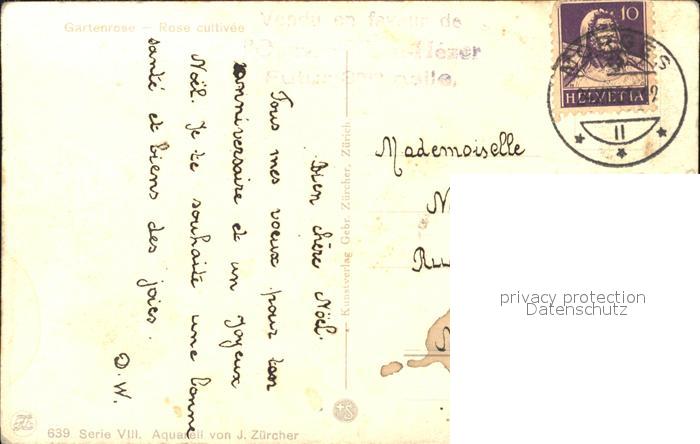 Gartenrose — Rose cultivée
Vendu en faveur de
Hézer
10
HELVETIA
II
Mademoiselle
N
privacy protection
Datenschutz
Bien chère Noël.
Tous mes voeux pour ton
anniversaire et un Joyeux
Noël. Je te souhaite une bonne
santé et biens des joies.
D. W.
Kunstverlag Gebr. Zürcher, Zürich
639 Serie VIII. Aquarell von J. Zürcher